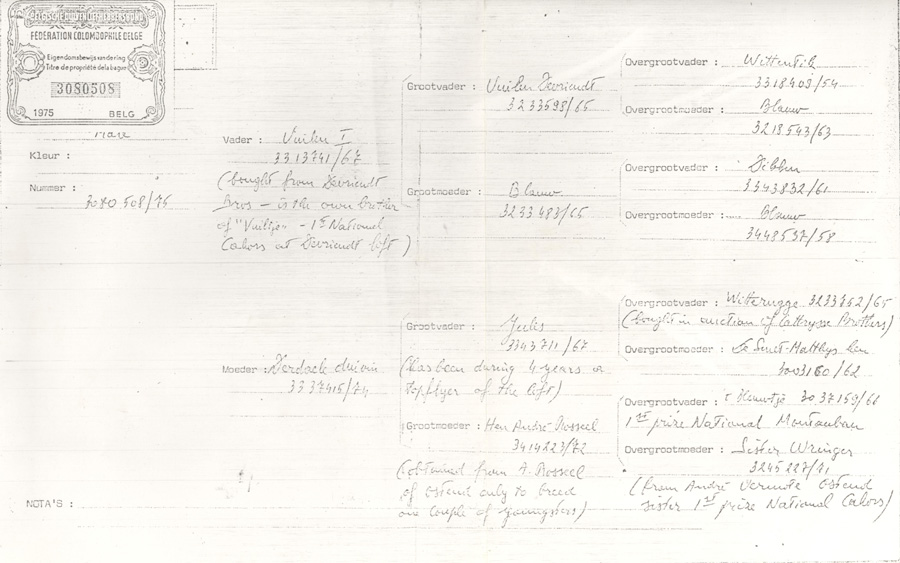 BELGISCHE DUIVENLIEFHEBBERSBOND
FÉDÉRATION COLOMBOPHILE BELGE
Eigendomsbewijs van de ring
Titre de propriété de la bague
3080508
1975 BELG
Kleur :
Nummer :
3080508/75
NOTA'S :
Vader : Vuilen I
3313741/67
(bought from Devriendt
Bros - is the own brother
of "Vuiltje" - 1st National
Cahors at Devriendt loft)
Moeder : Derdaele duivin
3337415/74
Grootvader : Vuilen Devriendt
3233598/65
Grootmoeder : Blauw
3233483/65
Grootvader : Jules
3343711/67
(has been during 4 years a
topflyer of the loft)
Grootmoeder : Hen André Rosseel
3414223/72
(obtained from A. Rosseel
of Ostend only to breed
one couple of youngsters)
Overgrootvader : Wittentik
3318409/54
Overgrootmoeder : Blauw
3218543/63
Overgrootvader : Dibben
3343832/61
Overgrootmoeder : Blauw
3448537/58
Overgrootvader : Witterugge 3233752/65
(bought in auction of Cattrysse Brothers)
Overgrootmoeder : De Smet-Matthys hen
3003160/62
Overgrootvader : 3037159/66
1st prize National Montauban
Overgrootmoeder : Sister Wringer
3245227/71
(from André Vermote Ostend
sister 1st prize National Cahors)